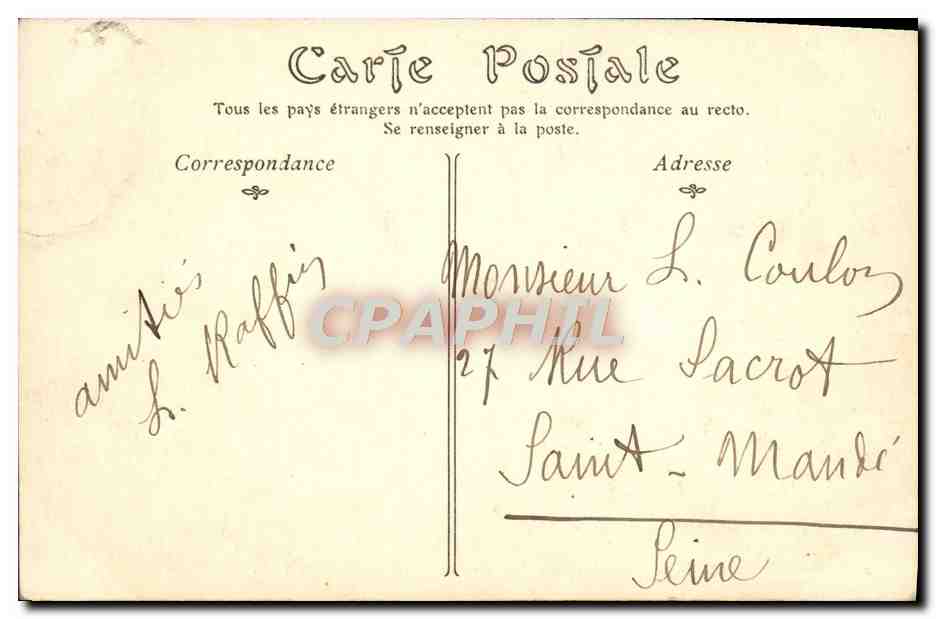 Carte Postale
Tous les pays étrangers n'acceptent pas la correspondance au recto.
Se renseigner à la poste.
Correspondance
Adresse
amitiés
L. Raffin
Monsieur L. Coulon
27 Rue Sacrot
Saint-Mandé
Seine
CPAPHIL